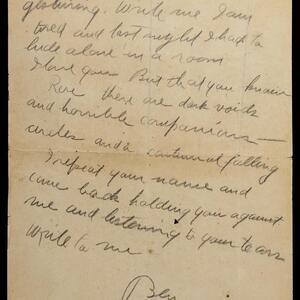 Write me I am
tired and last night I had to
hide alone in a room
I love you. But that you know
Rose there are dark voids
and horrible companions —
circles and a continual falling
I repeat your name and
come back holding you against
me and listening to your tears
Write to me
Ben